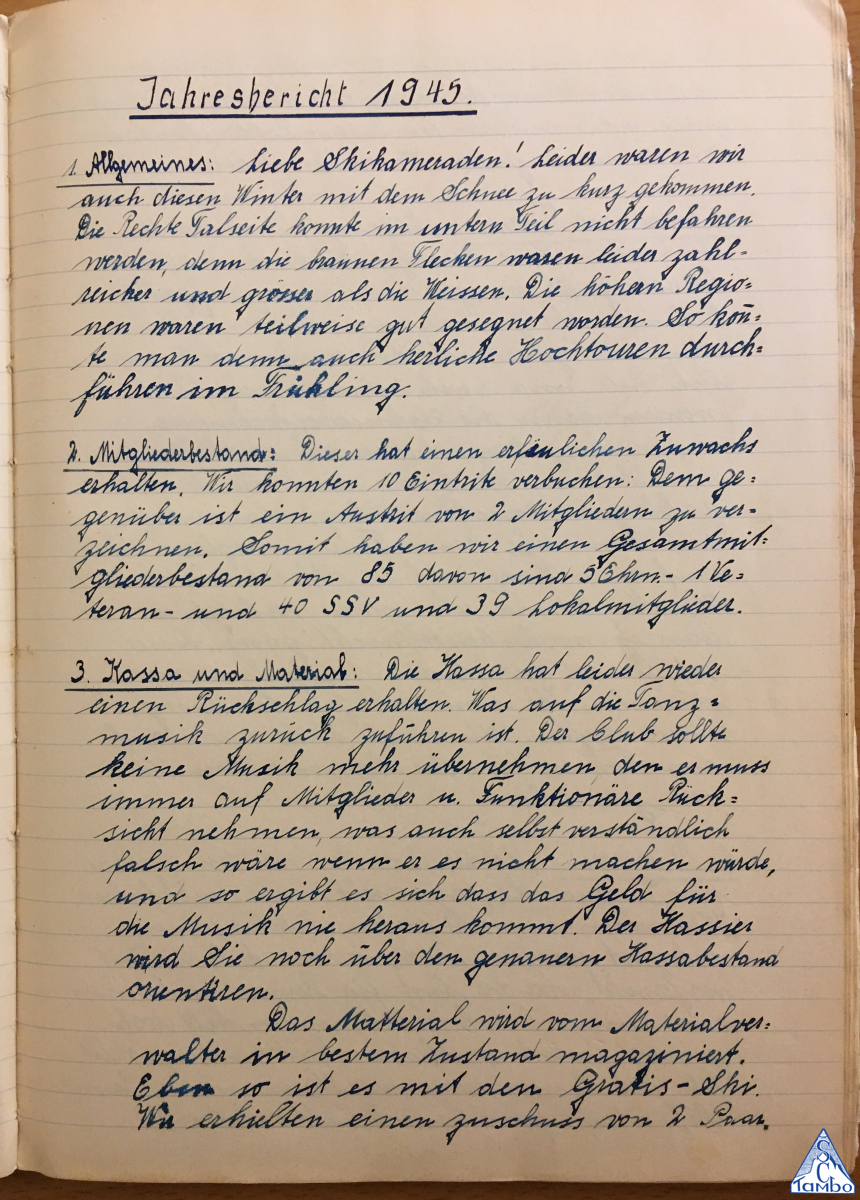 Jahresbericht 1945.
1. Allgemeines: Liebe Skikameraden! Leider waren wir
auch diesen Winter mit dem Schnee zu kurz gekommen.
Die Rechte Talseite konnte im untern Teil nicht befahren
werden, denn die braunen Flecken waren leider zahl=
reicher und grösser als die Weissen. Die höhern Regio=
nen waren teilweise gut gesegnet worden. So kon̄=
te man denn auch herliche Hochtouren durch=
führen im Frühling.
2. Mitgliederbestand: Dieser hat einen erfeulichen Zuwachs
erhalten. Wir konnten 10 Eintrite verbuchen: Dem ge=
genüber ist ein Austrit von 2 Mitgliedern zu ver=
zeichnen. Somit haben wir einen Gesamtmit=
gliederbestand von 85 davon sind 5 Ehrn.- 1 Ve=
teran- und 40 SSV und 39 Lokalmitglieder.
3. Kassa und Material: Die Kassa hat leider wieder
einen Rückschlag erhalten. Was auf die Tanz=
musik zurück zuführen ist. Der Club sollte
keine Musik mehr übernehmen den er muss
immer auf Mitglieder u. Funktionäre Rück=
sicht nehmen, was auch selbst verständlich
falsch wäre wenn er es nicht machen würde,
und so ergibt es sich dass das Geld für
die Musik nie heraus kommt. Der Kassier
wird Sie noch über den genauern Kassabestand
orientiren.
Das Matterial wird vom Materialver=
walter in bestem Zustand magaziniert.
Eben so ist es mit den Gratis-Ski.
Wir erhielten einen zuschuss von 2 Paar.
SC
Tambo